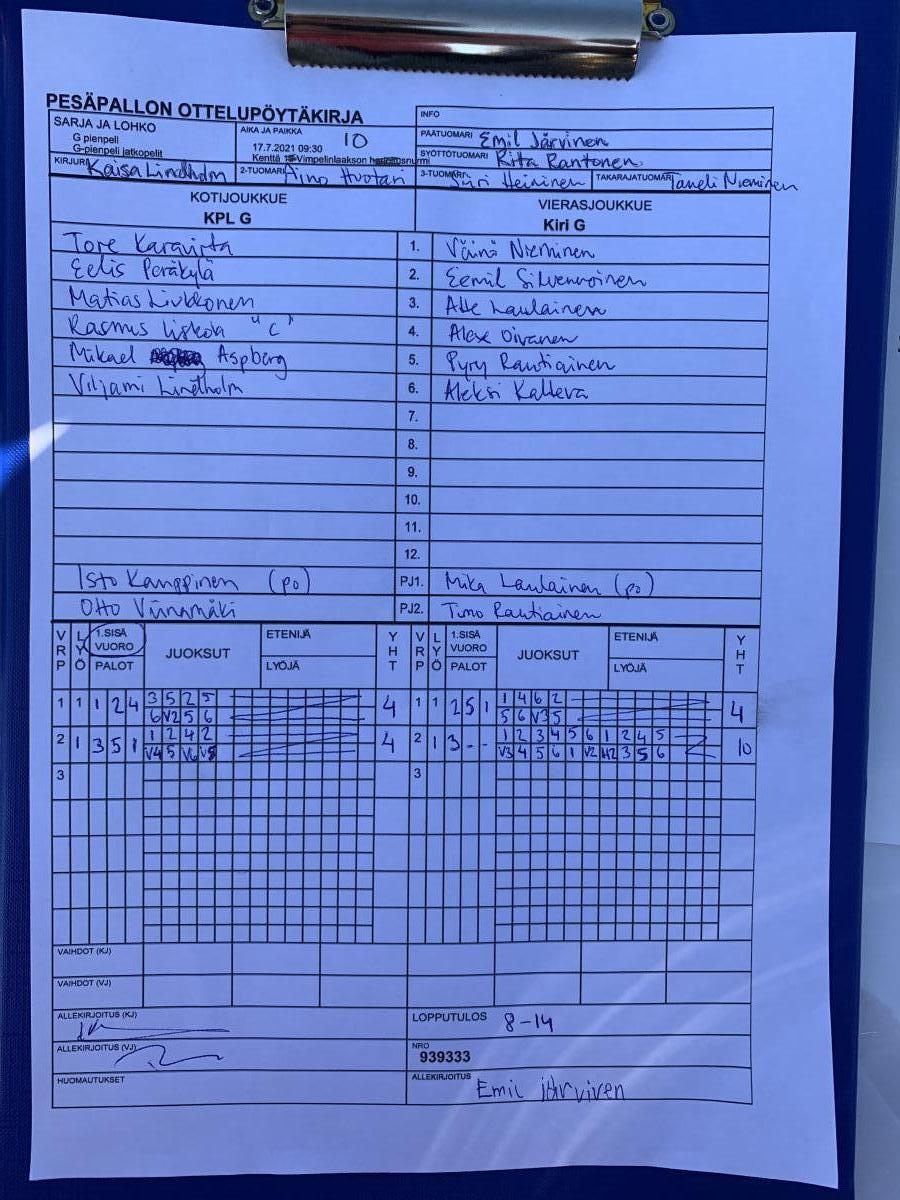 PESÄPALLON OTTELUPÖYTÄKIRJA
SARJA JA LOHKO
G pienpeli
G-pienpeli jatkopelit
AIKA JA PAIKKA 10
17.7.2021 09:30
Kenttä Vimpelinlaakson
INFO
PÄÄTUOMARI Emil Järvinen
SYÖTTÖTUOMARI Rita Rantonen
KIRJURI Kaisa Lindholm 2-TUOMARI Aino Huotari 3-TUOMARI Jyri Heininen TAKARAJATUOMARI Taneli Nieminen
KOTIJOUKKUE VIERASJOUKKUE
KPL G Kiri G
Tore Karavirta 1. Väinö Nieminen
Eelis Peräkylä 2. Eemil Silvennoinen
Matias Liukkonen 3. Atte Laulainen
Rasmus Liskola "C" 4. Alex Oivanen
Mikael Aspberg 5. Pyry Rautiainen
Viljami Lindholm 6. Aleksi Kalteva
7.
8.
9.
10.
11.
12.
Isto Kamppinen (po) PJ1. Mika Laulainen (po)
Otto Viinamäki PJ2. Timo Rautiainen
VRP LYÖ 1.SISÄ VUORO PALOT JUOKSUT ETENIJÄ LYÖJÄ YHT VRP LYÖ 1.SISÄ VUORO PALOT JUOKSUT ETENIJÄ LYÖJÄ YHT
1 1 1 2 4 3 5 2 5 4 1 1 2 5 1 1 4 6 2 4
6 V2 5 6 5 6 V3 5
2 1 3 5 1 1 2 4 2 4 2 1 3 - - 1 2 3 4 5 6 1 2 4 5 10
V4 5 V6 V5 V3 4 5 6 1 V2 H2 3 5 6
3 3
VAIHDOT (KJ)
VAIHDOT (VJ)
ALLEKIRJOITUS (KJ) LOPPUTULOS 8-14
ALLEKIRJOITUS (VJ) NRO
939333
HUOMAUTUKSET ALLEKIRJOITUS Emil järvinen